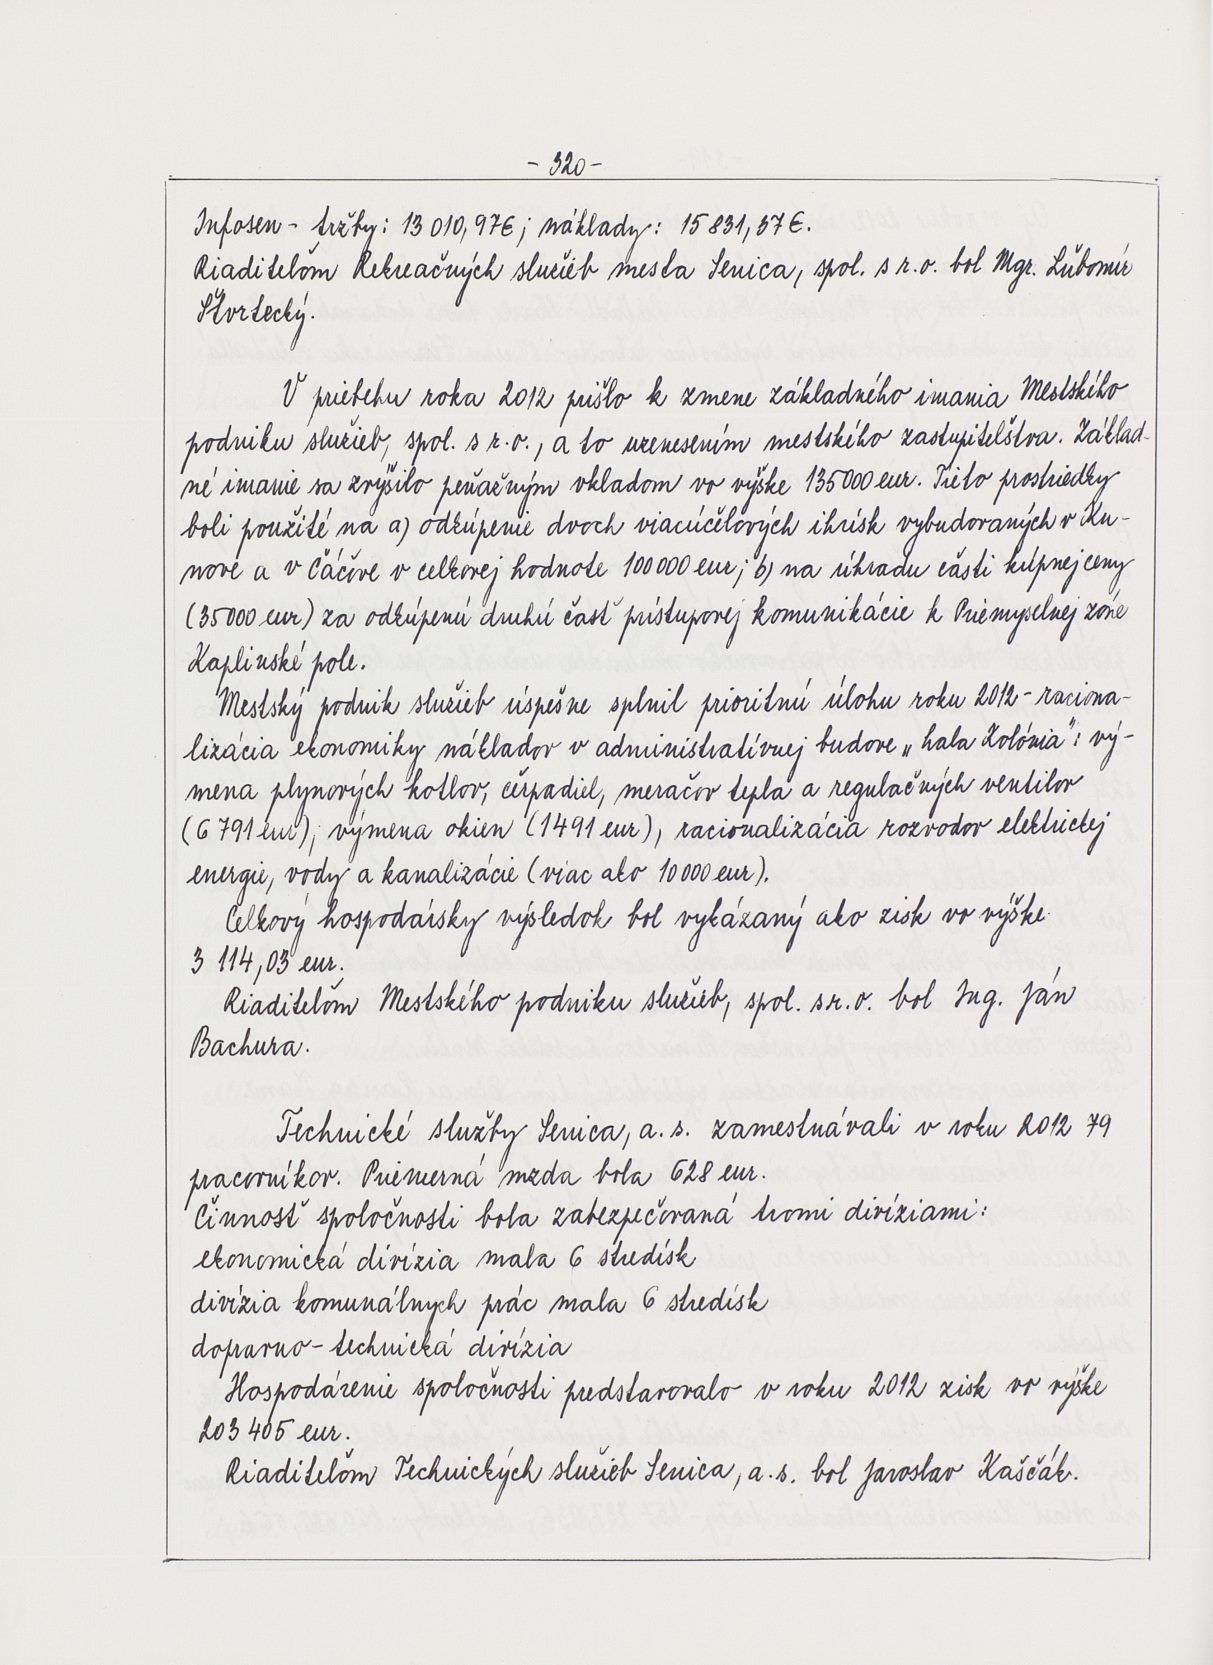 - 320 -
Infosen - tržby: 13 010,97 €; náklady: 15 831,37 €.
Riaditeľom Rekreačných služieb mesta Senica, spol. s r.o. bol Mgr. Ľubomír
Štvrtecký.
V priebehu roka 2012 prišlo k zmene základného imania Mestského
podniku služieb, spol. s r.o., a to uznesením mestského zastupiteľstva. Základ-
né imanie sa zvýšilo peňažným vkladom vo výške 135 000 eur. Tieto prostriedky
boli použité na a) odkúpenie dvoch viacúčelových ihrísk vybudovaných v Ku-
nove a v Čáčove v celkovej hodnote 100 000 eur; b) na úhradu časti kúpnej ceny
(35 000 eur) za odkúpenú druhú časť prístupovej komunikácie k Priemyselnej zóne
Kaplinské pole.
Mestský podnik služieb úspešne splnil prioritnú úlohu roku 2012 - raciona-
lizácia ekonomiky nákladov v administratívnej budove „hala Kolónia": vý-
mena plynových kotlov, čerpadiel, meračov tepla a regulačných ventilov
(6 791 eur), výmena okien (1491 eur), racionalizácia rozvodov elektrickej
energie, vody a kanalizácie (viac ako 10 000 eur).
Celkový hospodársky výsledok bol vykázaný ako zisk vo výške
3 114,03 eur.
Riaditeľom Mestského podniku služieb, spol. s r.o. bol Ing. Ján
Bachura.
Technické služby Senica, a.s. zamestnávali v roku 2012 79
pracovníkov. Priemerná mzda bola 628 eur.
Činnosť spoločnosti bola zabezpečovaná tromi divíziami:
ekonomická divízia mala 6 stredísk
divízia komunálnych prác mala 6 stredísk
dopravno - technická divízia
Hospodárenie spoločnosti predstavovalo v roku 2012 zisk vo výške
203 405 eur.
Riaditeľom Technických služieb Senica, a.s. bol Jaroslav Kaščák.